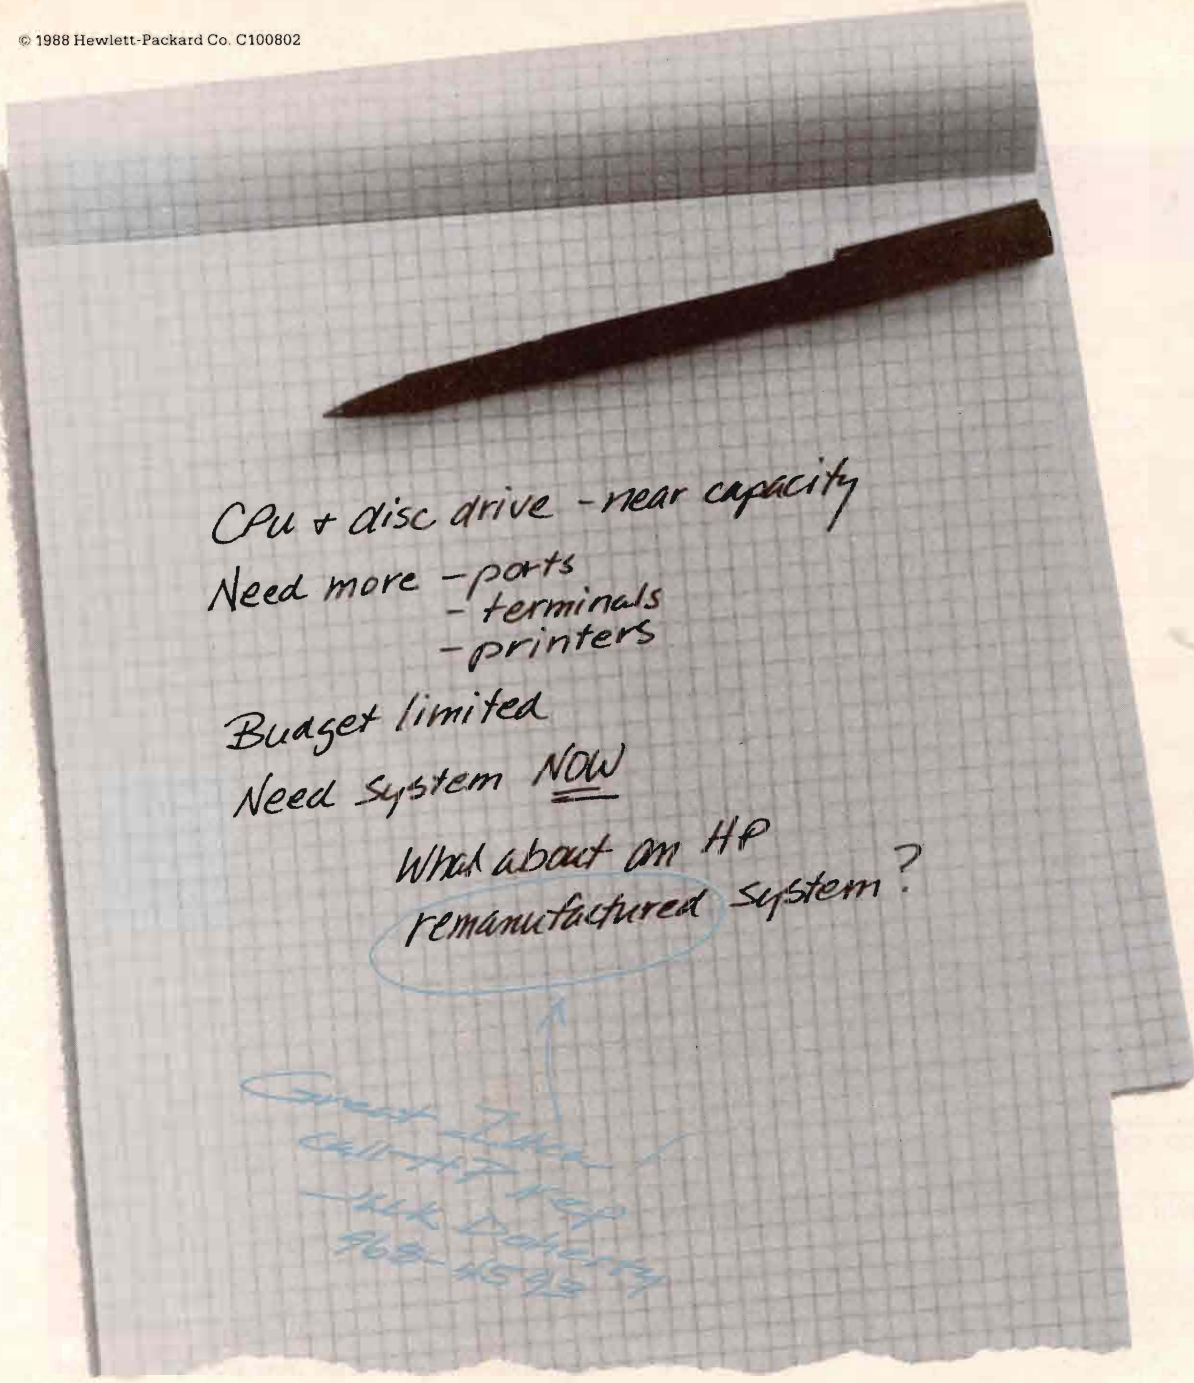 © 1988 Hewlett-Packard Co. C100802
CPU + disc drive - near capacity
Need more - ports
- terminals
- printers
Budget limited
Need system NOW
What about an HP
remanufactured system?
Great Idea!
Call HP rep
Doherty